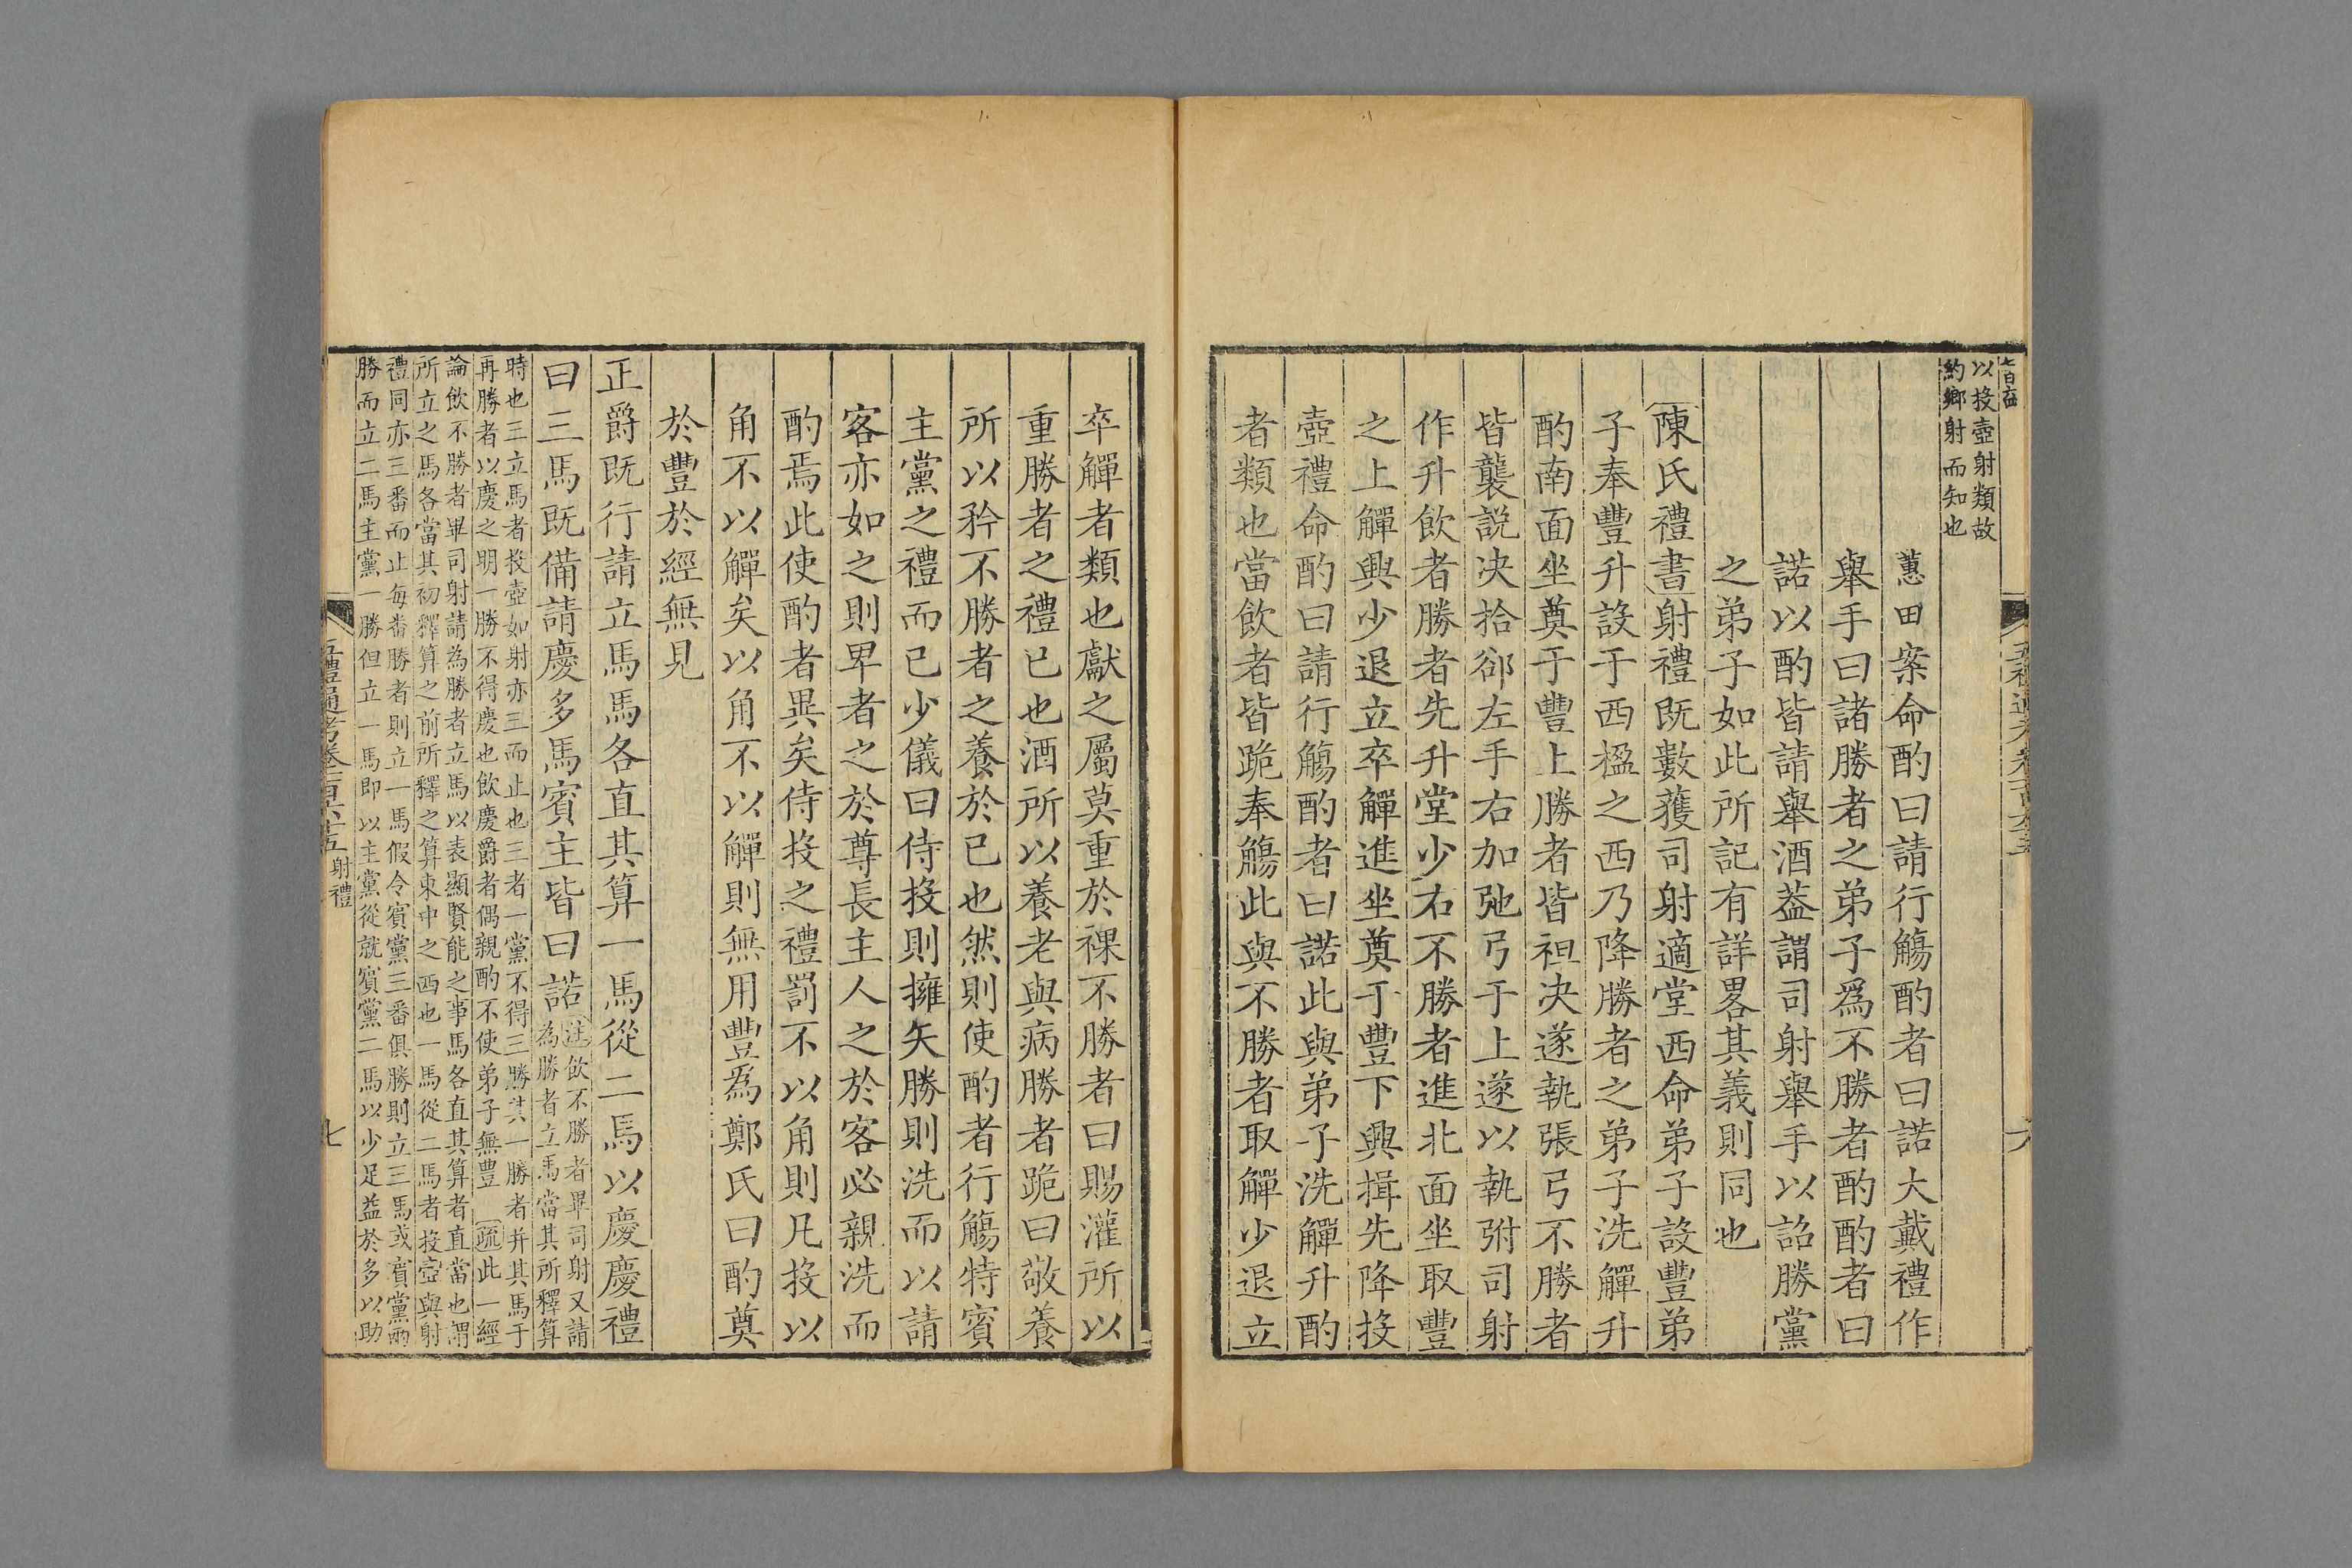 以投壺射類故
約鄉射而知也
蕙田案命酌曰請行觴酌者曰諾大戴禮作
舉手曰諸勝者之弟子爲不勝者酌酌者曰
諾以酌皆請舉酒葢謂司射舉手以詔勝黨
之弟子如此所記有詳畧其義則同也
陳氏禮書射禮既數獲司射適堂西命弟子設豐弟
子奉豐升設于西楹之西乃降勝者之弟子洗觶升
酌南面坐奠于豐上勝者皆袒决遂執張弓不勝者
皆襲説决拾郤左手右加弛弓于上遂以執弣司射
作升飲者勝者先升堂少右不勝者進北面坐取豐
之上觶興少退立卒觶進坐奠于豐下興揖先降投
壺禮命酌曰請行觴酌者曰諾此與弟子洗觶升酌
者類也當飲者皆跪奉觴此與不勝者取觶少退立
卒觶者類也獻之屬莫重於祼不勝者曰賜灌所以
重勝者之禮已也酒所以養老與病勝者跪曰敬養
所以矜不勝者之養於已也然則使酌者行觴特賓
主黨之禮而已少儀曰侍投則擁矢勝則洗而以請
客亦如之則卑者之於尊長主人之於客必親洗而
酌焉此使酌者異矣侍投之禮罰不以角則凡投以
角不以觶矣以角不以觶則無用豐爲鄭氏曰酌奠
於豐於經無見
正爵既行請立馬馬各直其算一馬從二馬以慶慶禮
曰三馬既備請慶多馬賓主皆曰諾
注飲不勝者畢司射又請
為勝者立馬當其所釋算
時也三立馬者投壺如射亦三而止也三者一黨不得三勝其一勝者并其馬于
再勝者以慶之明一勝不得慶也飲慶爵者偶親酌不使弟子無豐 疏此一經
論飲不勝者畢司射請為勝者立馬以表顯賢能之事馬各直其算者直當也謂
所立之馬各當其初釋算之前所釋之算東中之西也一馬從二馬者投壺與射
禮同亦三番而止每番勝者則立一馬假令賓黨三番俱勝則立三馬或賓黨兩
勝而立二馬主黨一勝但立一馬即以主黨從就賓黨二馬以少足益於多以助
五禮通考卷一百六十五 射禮
七